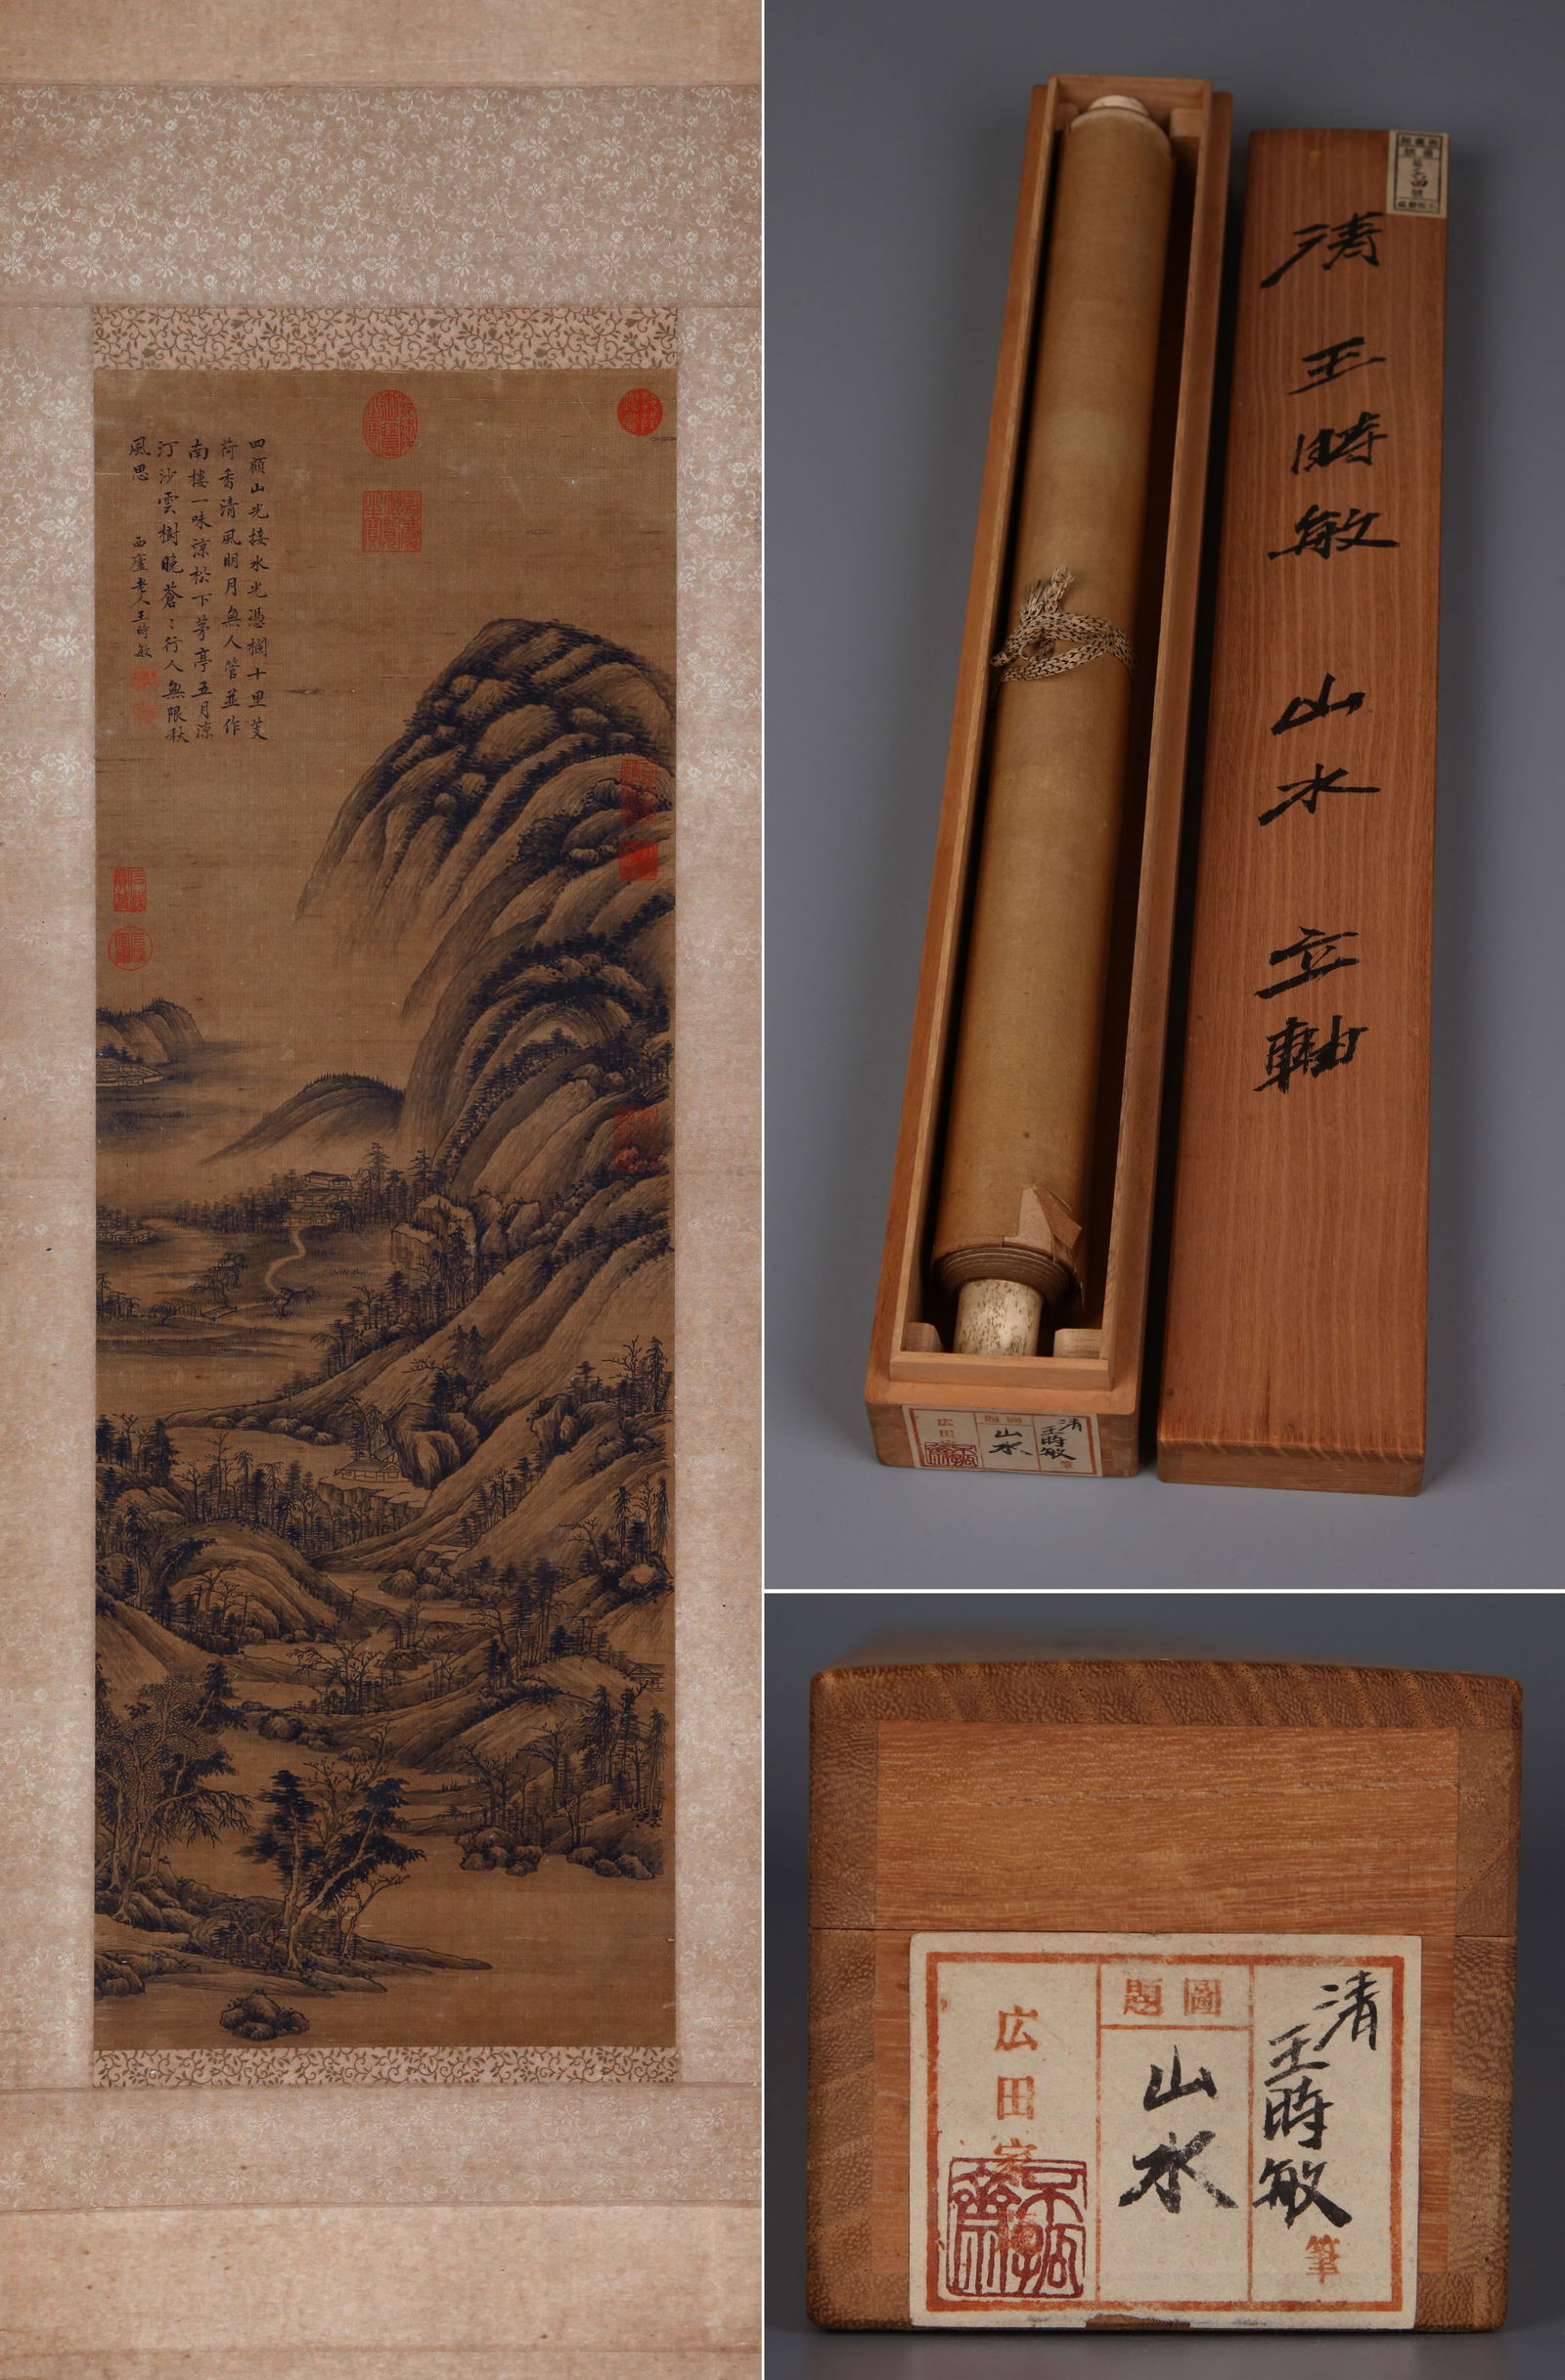 四顧山光接水光憑欄十里芰
荷香清風明月無人管並作
南樓一味涼松下茅亭五月涼
汀沙雲樹晚蒼〻行人無限秋
風思
西廬老人王時敏
清 王時敏 山水 立軸
清
王時敏
筆
圖題
山水
広田
清
王時敏
筆
圖題
山水
広田家
不孤齋